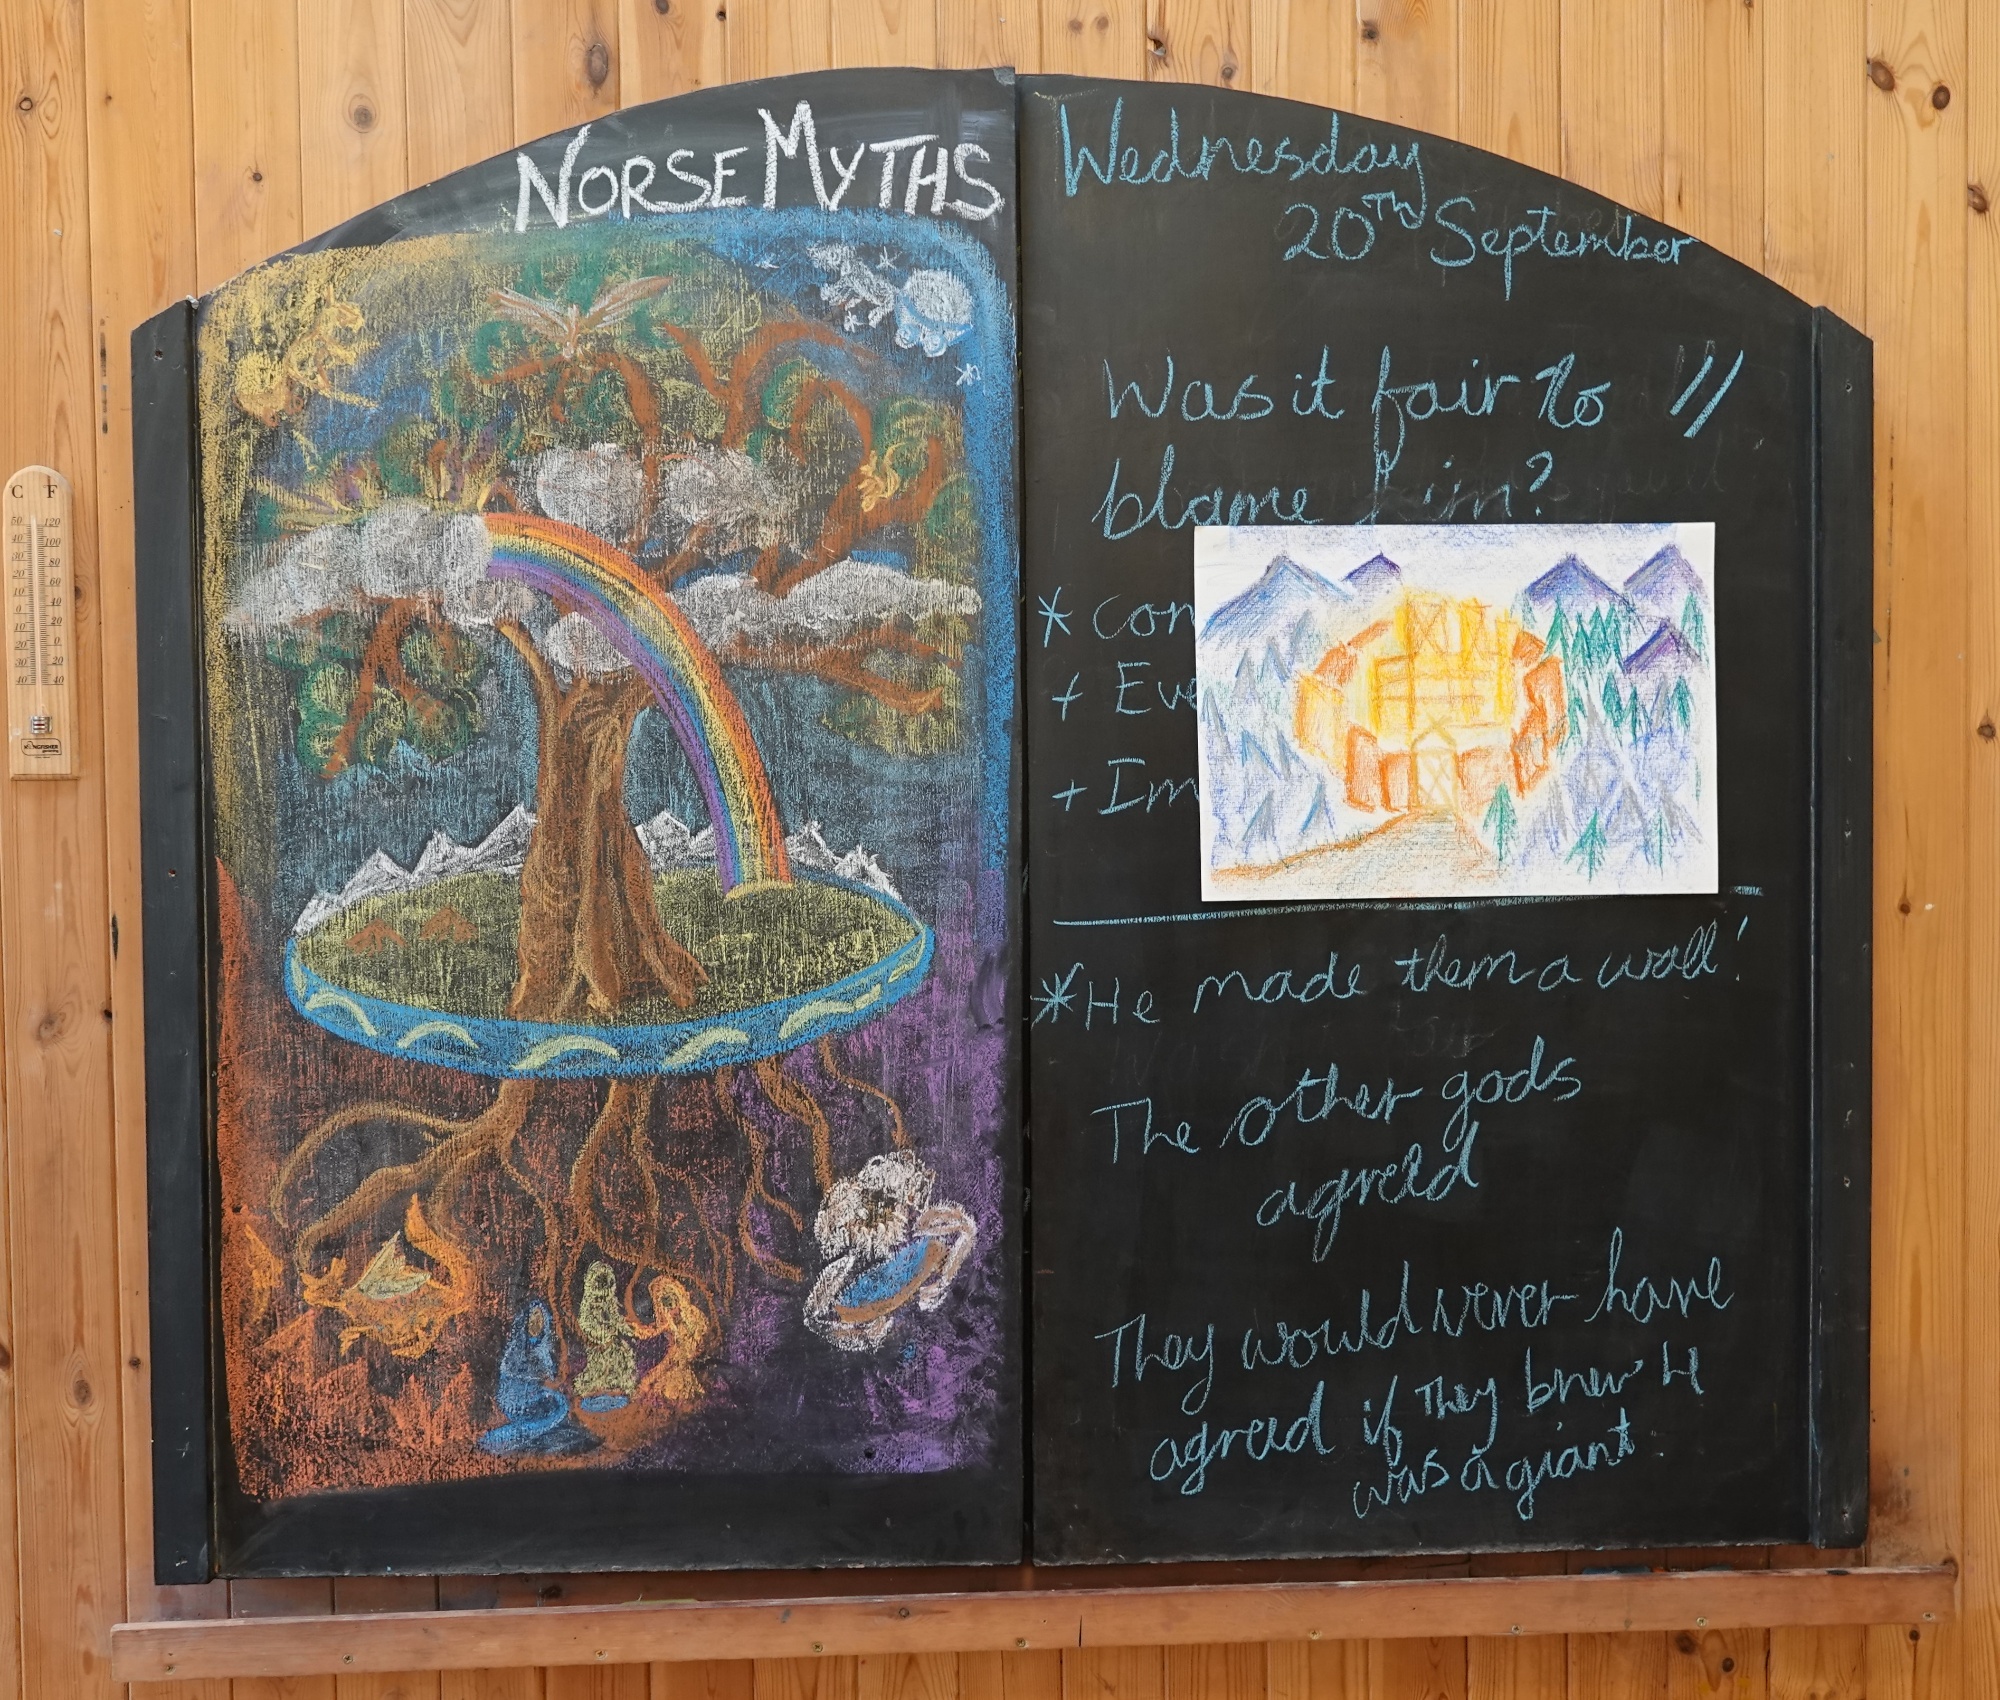 NORSE MYTHS
Wednesday
20TH September
Was it fair to //
blame him?
* Con
+ Eve
+ Im
* He made them a wall!
The other gods
agreed
They would never have
agreed if they knew he
was a giant
C F
50 120
40 100
30 80
20 60
10 40
0 20
10 0
20 20
30 40
40
KINGFISHER